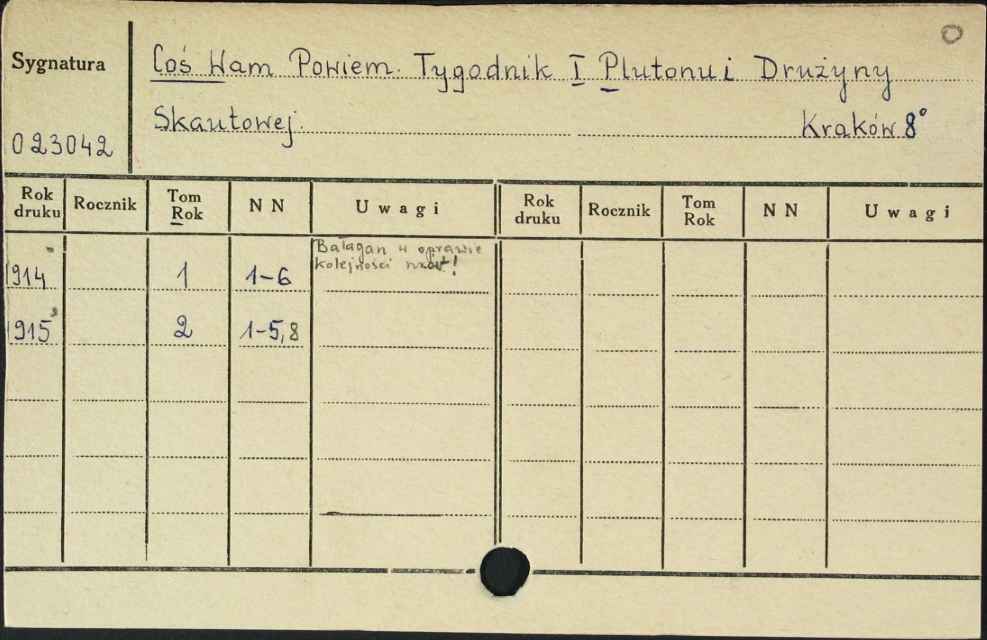 Sygnatura
Coś Wam Powiem. Tygodnik I Plutonu i Drużyny
Skautowej. Kraków 8°
023042
Rok druku Rocznik Tom Rok NN Uwagi Rok druku Rocznik Tom Rok NN Uwagi
Bałagan w oprawie
kolejności
1914 1 1-6
1915 2 1-5,8